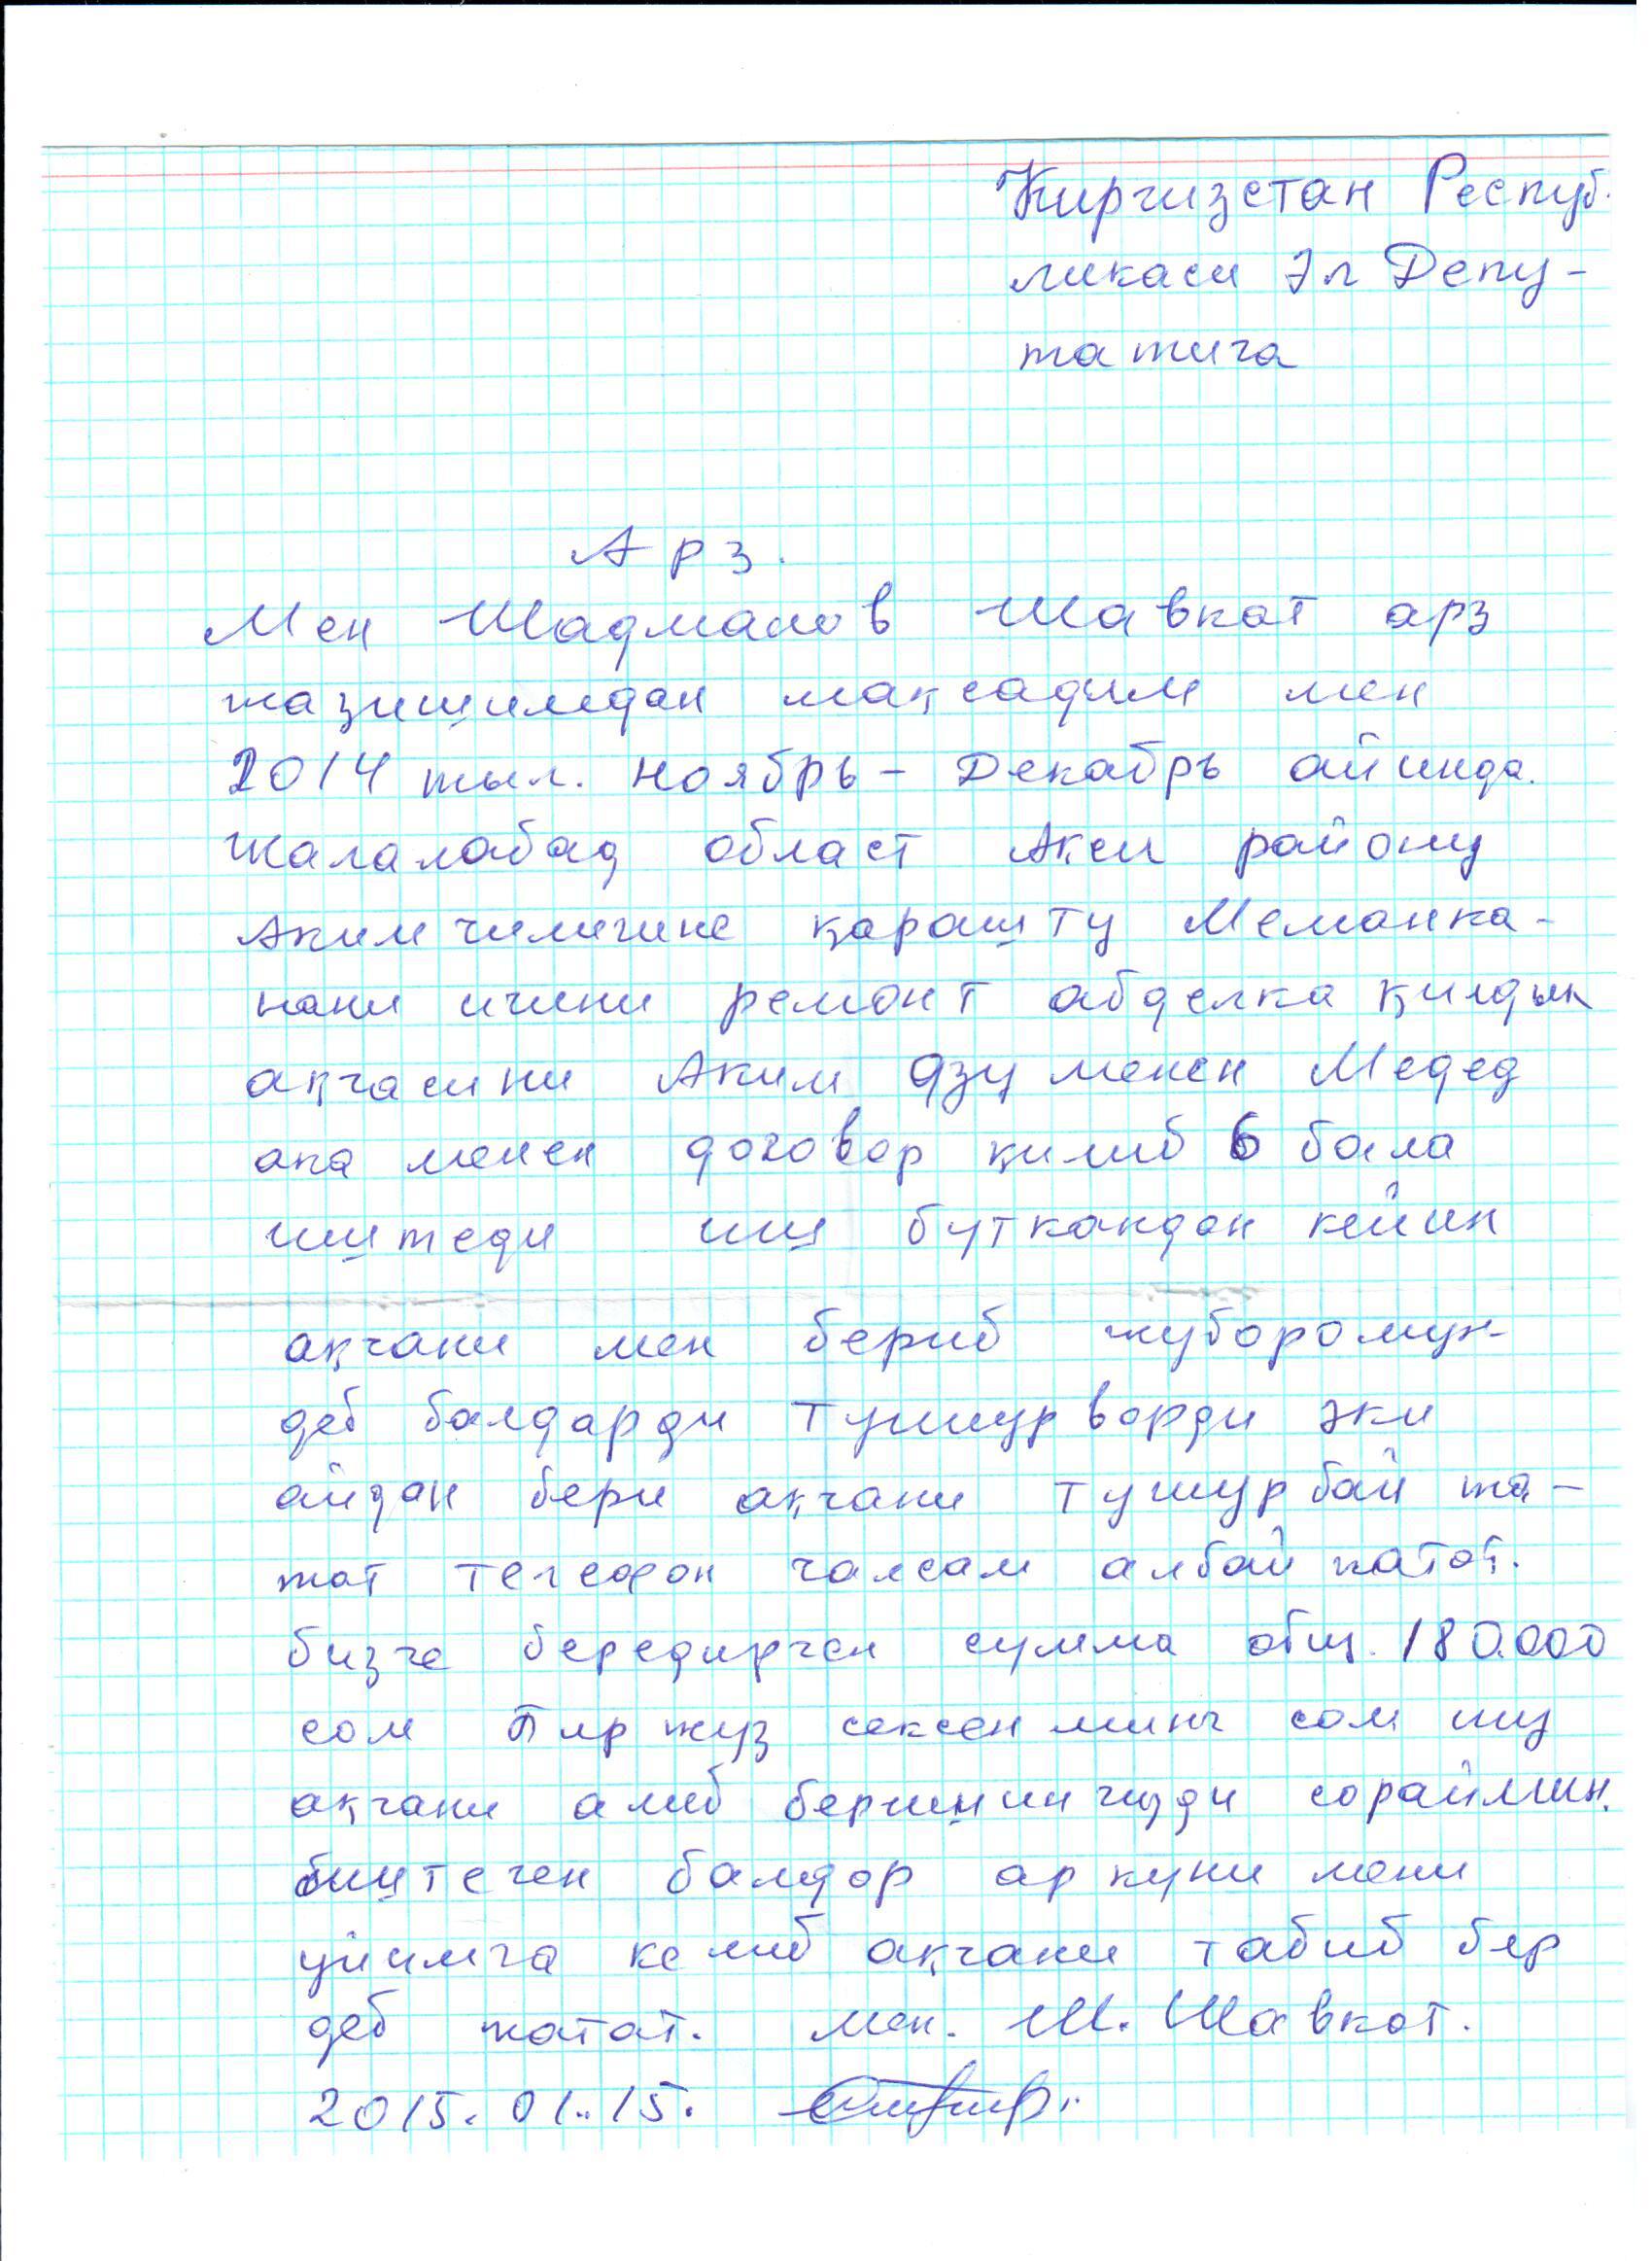 Киргизстан Респуб.
ликаси Эл Депу-
татига
Арз.
Мен Шадманов Шавкат арз
жазишимдан мақсадим мен
2014 жыл. ноябрь - Декабрь айинда.
Жалалабад област Аксы району
Акимчилигине қарашту Меманка-
нани ичини ремонт абделка қилдык
ақчасини Аким өзу менен Медед
ака менен договор қилиб 6 бала
иштеди иш буткандан кейин
ақчани мен бериб жуборомун-
деб балдарди тушурворди эки
айдан бери ақчани тушурбай жа-
жат телефон чалсам албай жатат.
бизге бередирген сумма общ. 180.000
сом Бир жуз сексен минг сом шу
ақчани алиб беришингизди сораймин.
иштеген балдар ар куни мени
уйимга келиб ақчани табиб бер
деб жатат. Мен. Ш. Шавкат.
2015. 01. 15.